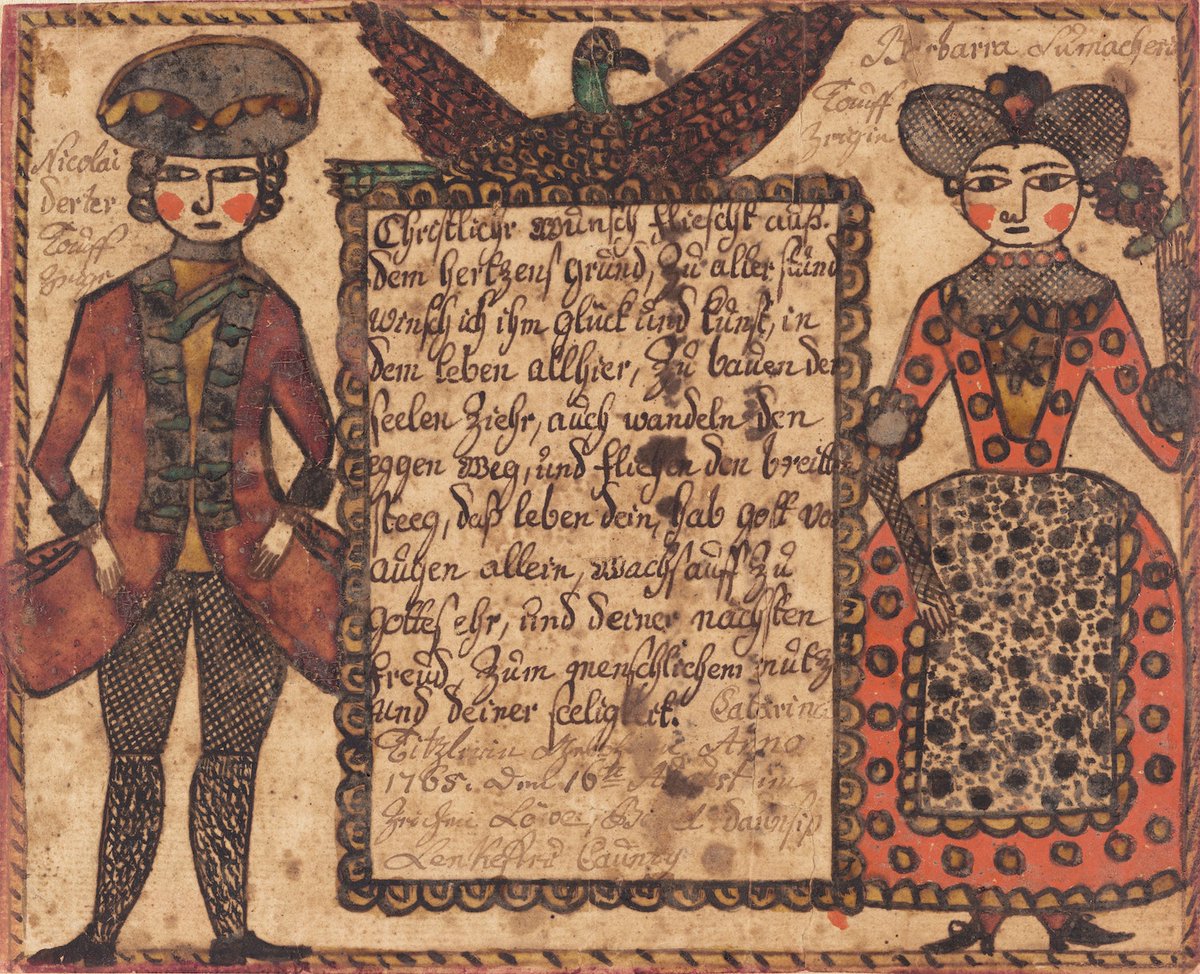 Nicolai
derter
Touff
Zeigr
Barbarra Sumachern
Touff
Zeigin
Christlichr wunsch fliescht auß.
dem hertzens grund, Zu aller stund
winsch ich ihm glück und kunst, in
dem leben allhier, Zu bauen der
seelen Ziehr, auch wandeln den
eggen weg, und fliehen den breitten
steeg, daß leben dein, hab gott vor
augen allein, wachs auff Zu
gottes ehr, und deiner nachsten
freud, Zum menschlichem nutz
und deiner seeligkeit. Catarina
Anno
1765. den 16te August im
Zeichen Löwe, daunsip
Lenkester Caunty